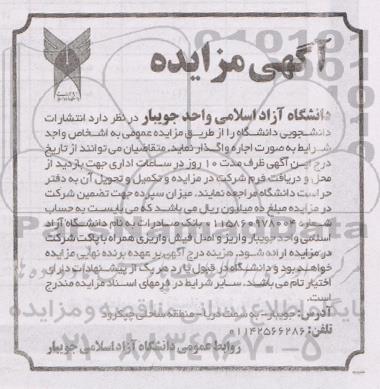 آگهی مزایده
دانشگاه آزاد اسلامی واحد جویبار در نظر دارد انتشارات
دانشجویی دانشگاه را از طریق مزایده عمومی به اشخاص واجد
شرایط به صورت اجاره واگذار نماید. متقاضیان می توانند از تاریخ
درج این آگهی ظرف مدت ۱۰ روز در ساعات اداری جهت بازدید از
محل و دریافت فرم شرکت در مزایده و تکمیل و تحویل آن به دفتر
حراست دانشگاه مراجعه نمایند. میزان سپرده جهت تضمین شرکت
در مزایده مبلغ ده میلیون ریال می باشد که می بایست به حساب
شماره بانک صادرات به نام دانشگاه آزاد
اسلامی واحد جویبار واریز و اصل فیش واریزی همراه با پاکت شرکت
در مزایده ارائه شود. هزینه درج آگهی بر عهده برنده نهایی مزایده
خواهد بود و دانشگاه در قبول یا رد هر یک از پیشنهادات دارای
اختیار تام می باشد. سایر شرایط در فرمهای اسناد مزایده مندرج
است.
آدرس: جویبار- به سمت دریا- منطقه ساحلی چپکرود
تلفن: ۰۱۱۴۲۵۶۶۲۸۶
روابط عمومی دانشگاه آزاد اسلامی جویبار
پایگاه اطلاع رسانی مناقصه و مزایده
۰۲۱-۸۸۳۴۹۶۷۰-۵